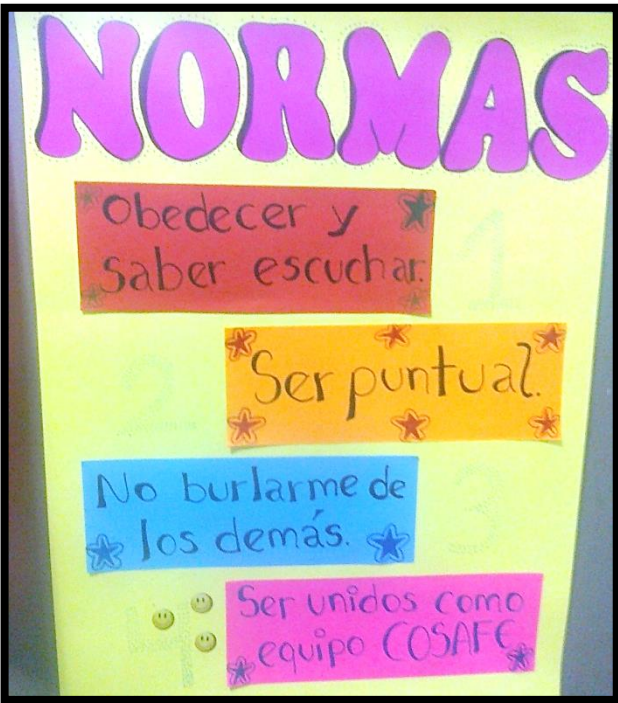 NORMAS
Obedecer y
saber escuchar.
1
Ser puntual.
2
No burlarme de
los demás.
3
4
Ser unidos como
equipo COSAFE